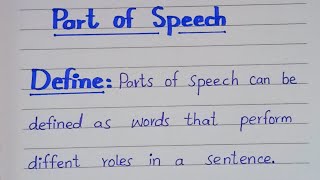 Part of Speech
Define: Parts of speech can be
defined as words that perform
diffent roles in a sentence.